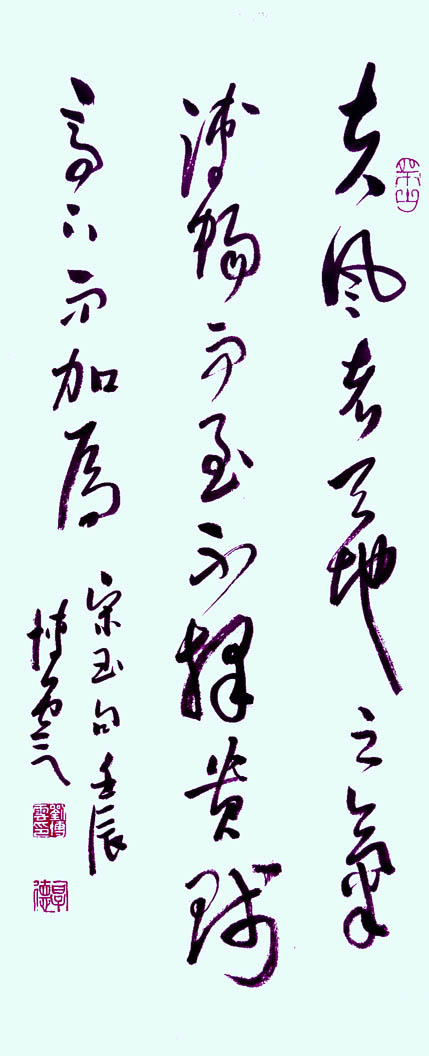 夫風者天地之氣
溥暢而至不擇貴賤
高下而加焉
宋玉句壬辰
博雲
劉博雲印